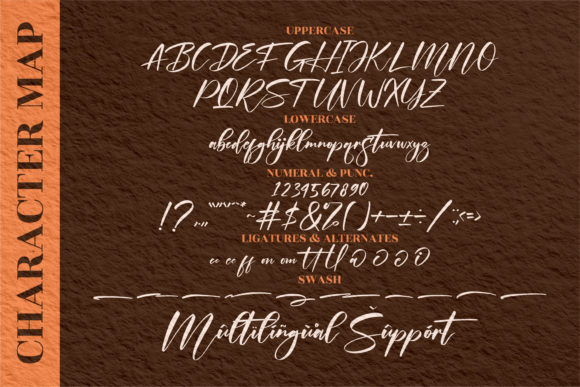 CHARACTER MAP
UPPERCASE
ABCDEFGHIJKLMNO
PQRSTUNWXYZ
LOWERCASE
abcdefghijklmnopqrstuvwxyz
NUMERAL & PUNC.
1234567890
!?.,,"''""~*~#$&%()+-±÷/:;<=>
LIGATURES & ALTERNATES
cc cc ff on om tt tl o o o o o
SWASH
Mûltïlíñgùàl Šûppórt